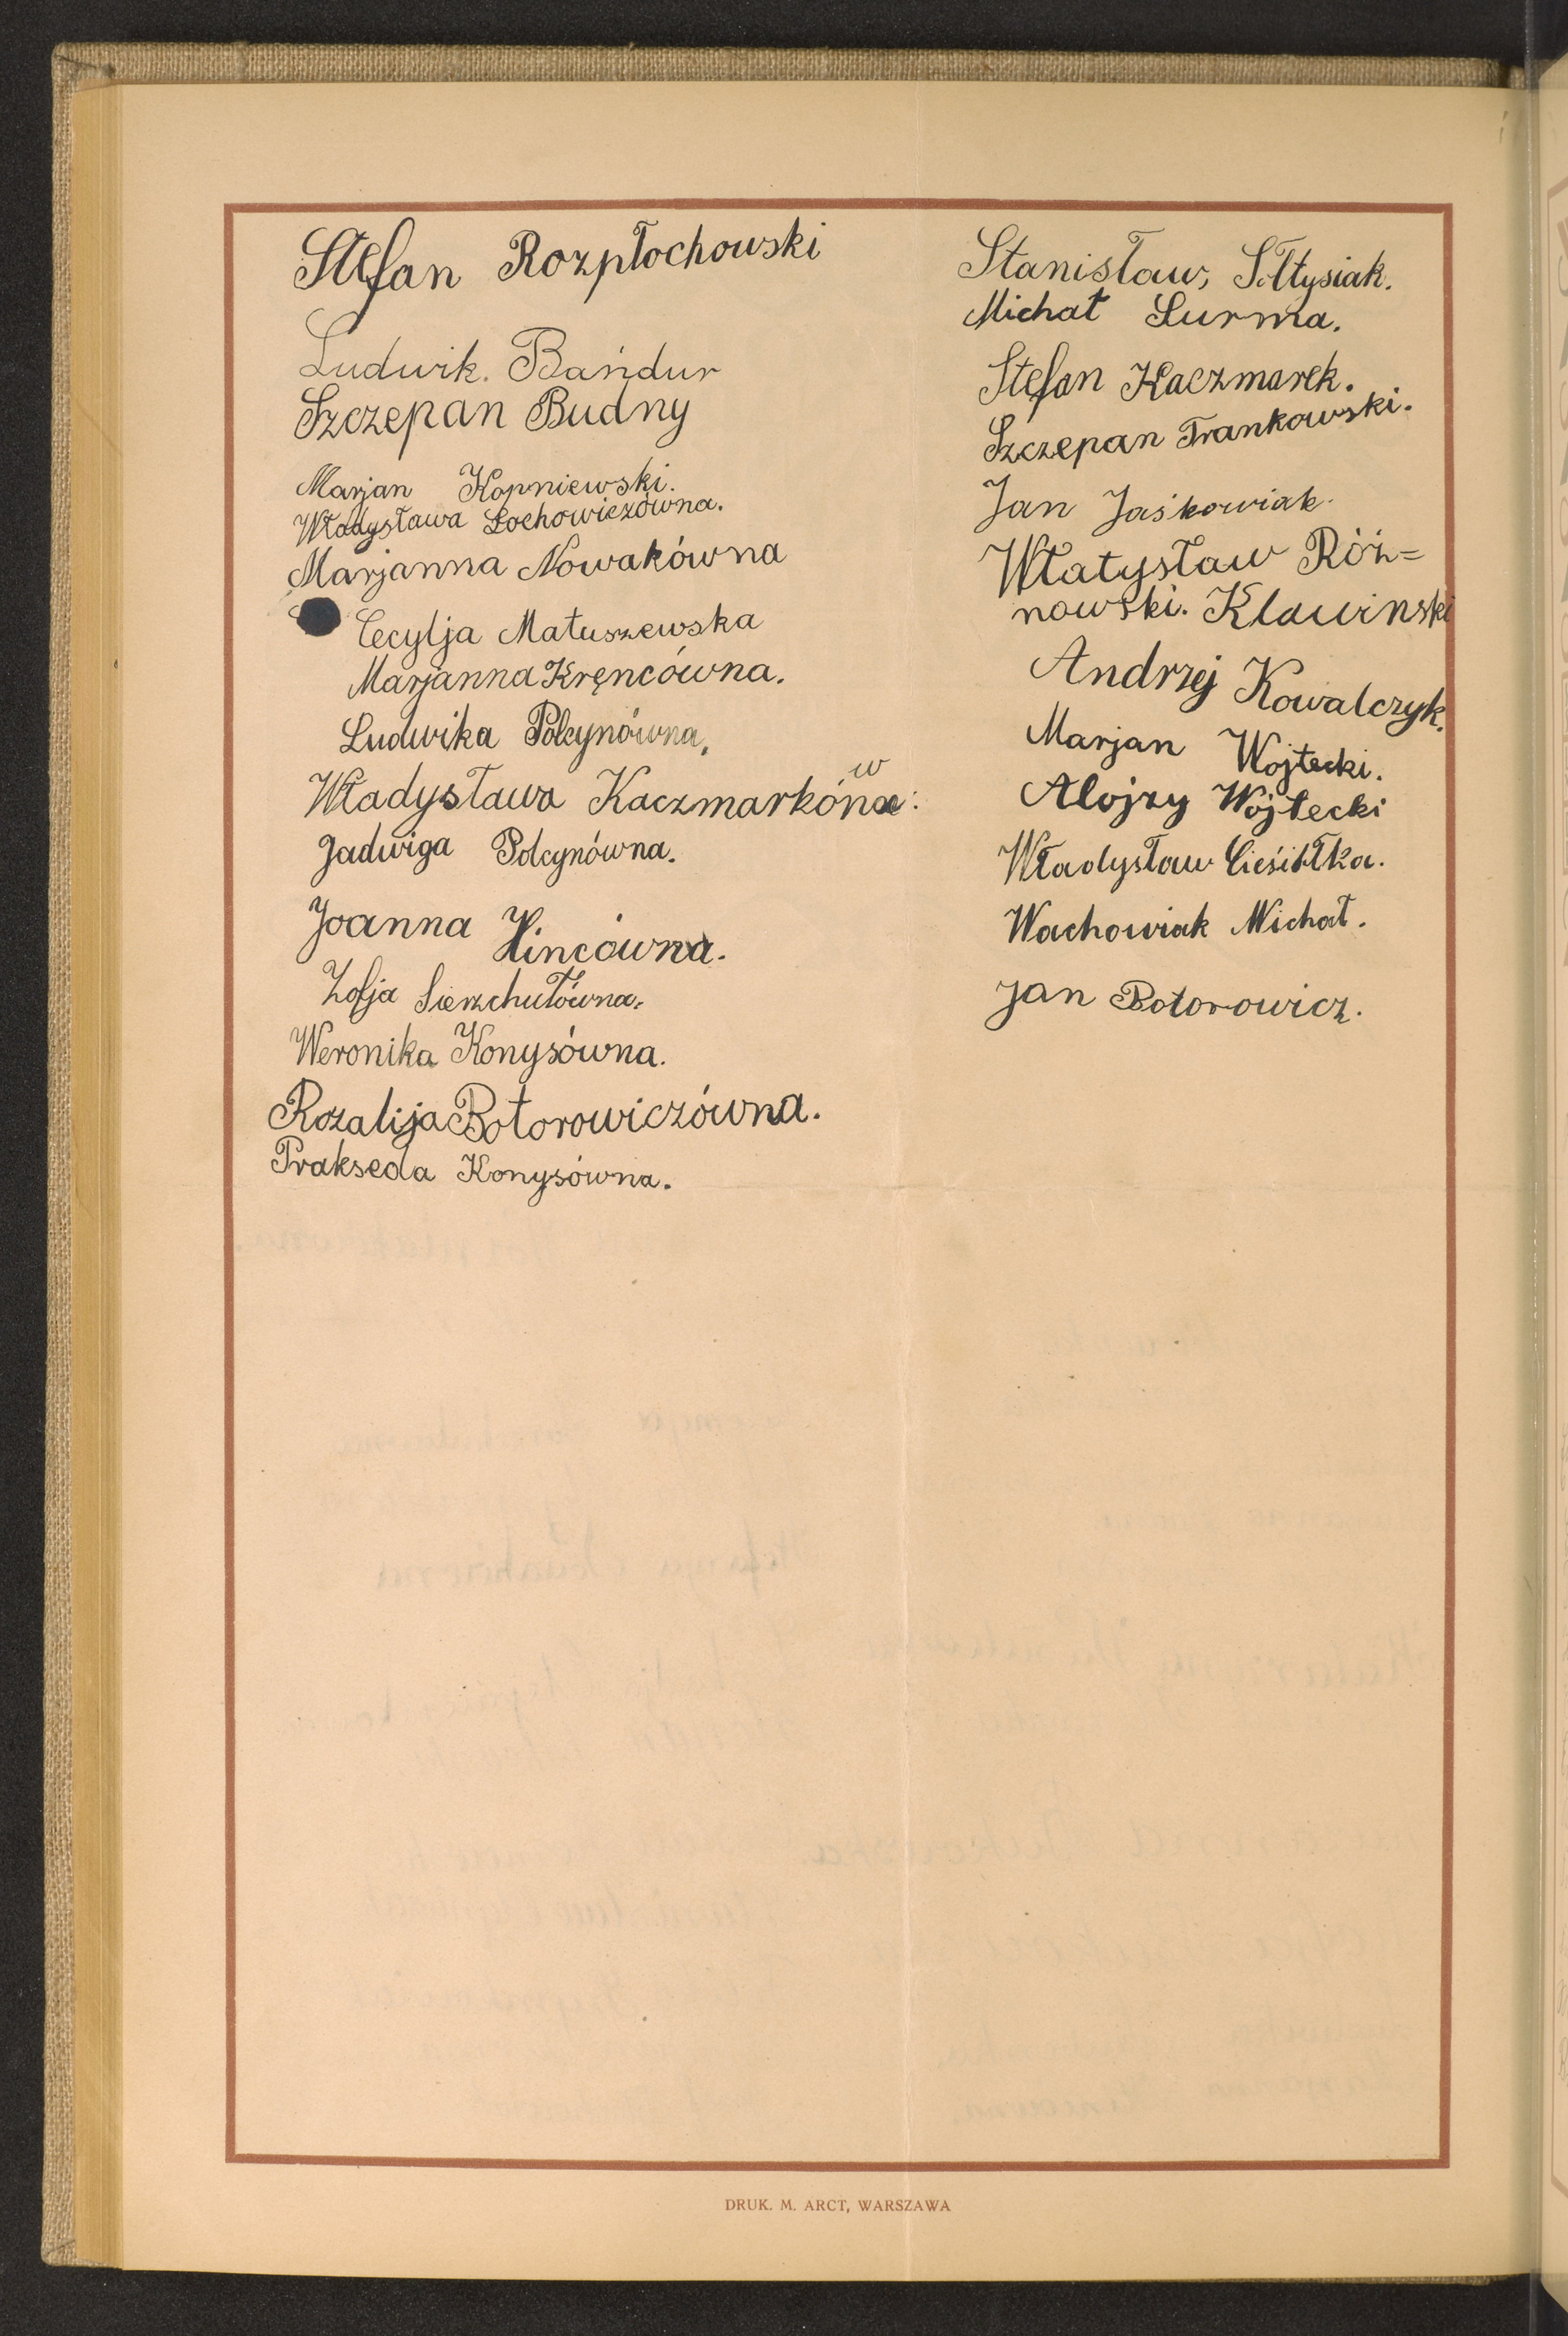 Stefan Rozpłochowski
Ludwik. Bańdur
Szczepan Budny
Marjan Kopniewski.
Władysława Lochowiczówna.
Marjanna Nowakówna
Cecylja Matuszewska
Marjanna Kręncówna.
Ludwika Polcynówna,
Władysława Kaczmarkówna:
Jadwiga Polcynówna.
Joanna Hincówna.
Zofja Sierzchułówna.
Weronika Konysówna.
Rozalija Botorowiczówna.
Prakseda Konysówna.
Stanisław, Sołtysiak.
Michał Surma.
Stefan Kaczmarek.
Szczepan Frankowski.
Jan Jaśkowiak.
Włatysław Róż=
nowski. Klawinski
Andrzej Kowalczyk.
Marjan Wojtecki.
Alojzy Wojtecki
Władysław
Wachowiak Michał.
Jan Botorowicz.
DRUK. M. ARCT, WARSZAWA